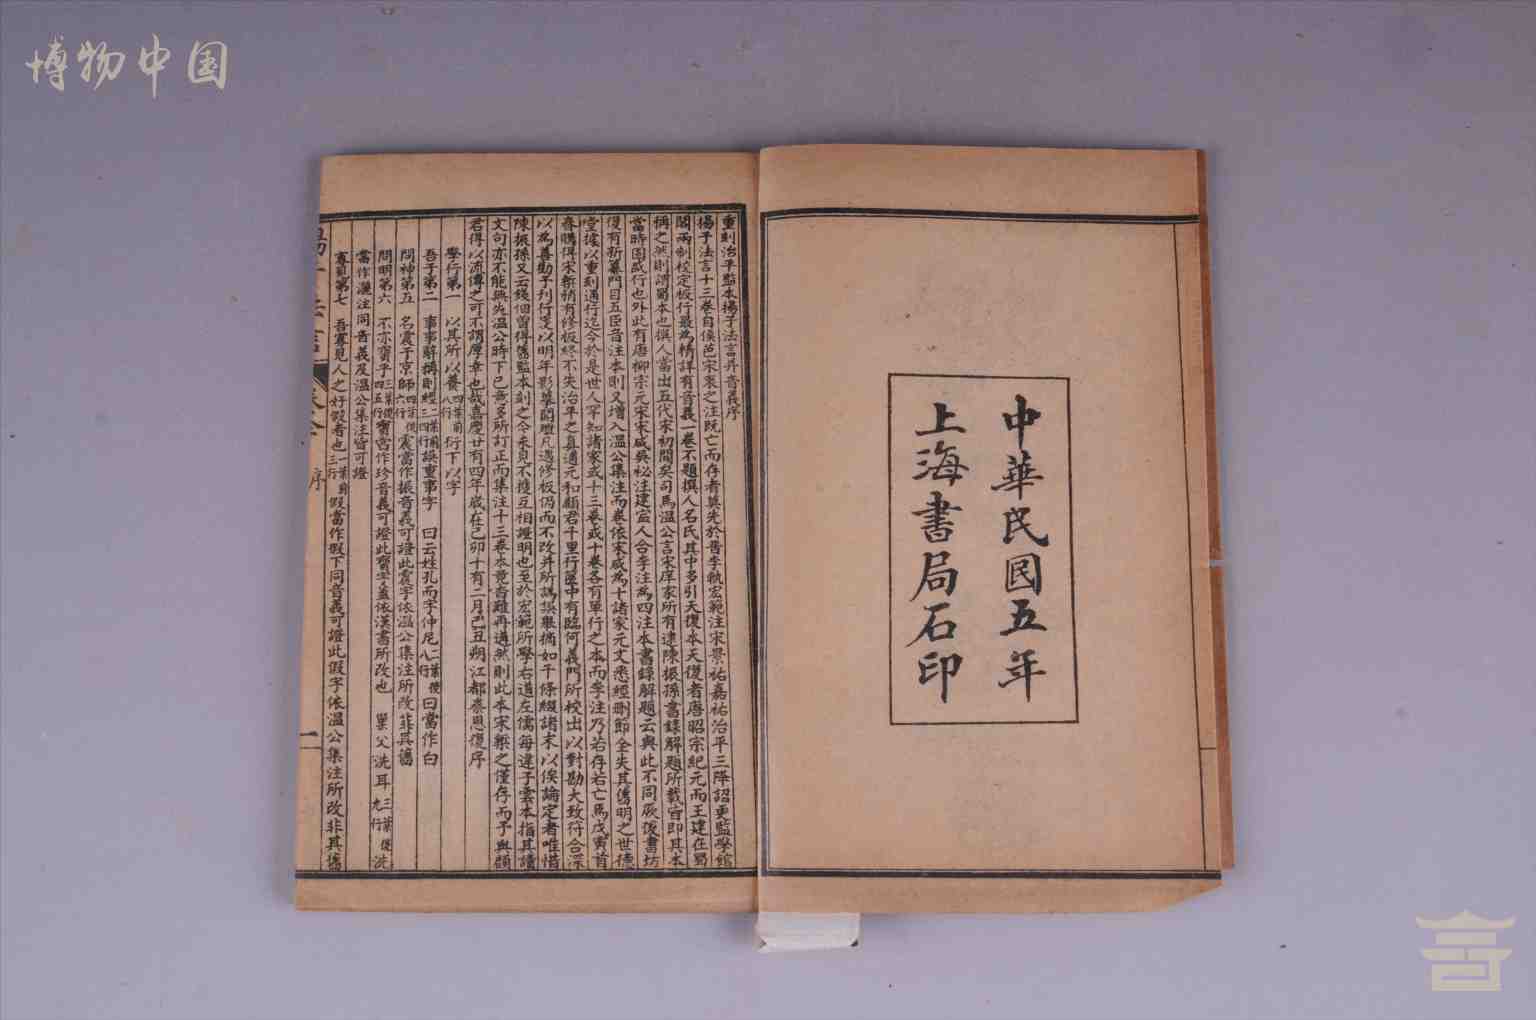 博物中国
中華民國五年
上海書局石印
重刻治平監本揚子法言并音義序
揚子法言十三卷自侯芭宋衷之注既亡而存者莫先於晉李軌宏範注宋景祐嘉祐治平三降詔更監學館
閣兩制校定板行最為精詳有音義一卷不題撰人名氏其中多引天復本天復者唐昭宗紀元而王建在蜀
稱之然則謂蜀本也撰人當出五代宋初間矣司馬溫公言宋庠家所有逮陳振孫書錄解題所載皆即其本
當時固盛行也外此有唐柳宗元宋宋咸吳祕注建寧人合李注為四注本書錄解題云與此不同厥後書坊
復有新纂門目五臣音注本則又增入溫公集注而卷依宋咸為十諸家元文悉經刪節全失其舊明之世德
堂據以重刻通行迄今於是世人罕知諸家或十三卷或十卷各有單行之本而李注乃若存若亡焉戊寅首
春購得宋槧稍有修板終不失治平之真適元和顧君千里行篋中有臨何義門所校出以對勘大致符合深
以為善勸予刊行爰以明年影摹開雕凡遇修板仍而不改并所譌誤舉摘如干條綴諸末以俟論定者唯惜
陳振孫又云錢佃曾得舊監本刻之今未見不獲互相證明也至於宏範所學右道左儒每違子雲本指其讀
文句亦不能無失溫公時下己意多所訂正而集注十三卷本竟杳難再遇然則此本宋槧之僅存而予與顧
君得以流傳之可不謂厚幸也哉嘉慶廿有四年歲在己卯十有二月己丑朔江都秦恩復序
學行第一 以其所以養四葉前八行衍下以字
吾子第二 事事辭稱則經二葉前四行誤重事字 曰云姓孔而字仲尼二葉後八行曰當作白
問神第五 名震于京師四葉後六行震當作振音義可證此震字依溫公集注所改非其舊
問明第六 不亦寶乎三葉後五行寶當作珍音義可證此寶字蓋依漢書所改也 巢父洗耳三葉後九行洗
當作灑注同音義及溫公集注皆可證
寡見第七 吾寡見人之好假者也一葉前三行假當作徦下同音義可證此假字依溫公集注所改非其舊
序
一